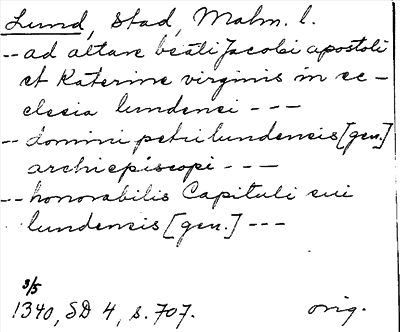 Lund, stad, Malm. l.
-- ad altare beati Jacobi apostoli
et Katerine virginis in ec-
clesia lundensi ---
-- domini petri lundensis [gen.]
archiepiscopi ---
-- honorabilis Capituli sui
lundensis [gen.] ---
3/5
1340, SD 4, s. 707. orig.